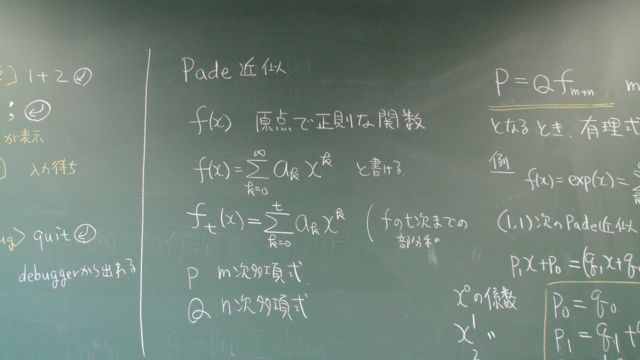 ] 1+2 ↵
; ↵
が表示
] 入力待ち
ug> quit ↵
debuggerから出れる
Pade 近似
f(x) 原点で正則な関数
f(x) = ∑_{k=0}^{∞} a_k x^k と書ける
f_t(x) = ∑_{k=0}^{t} a_k x^k (fのt次までの部分和
P m次多項式
Q n次多項式
P = Q f_{m+n} m
となるとき, 有理式
例
f(x) = exp(x) =
(1,1)次のPade近似
p_1 x + p_0 = (q_1 x + q_0
x^0の係数 p_0 = q_0
x^1 〃 p_1 = q_1 +